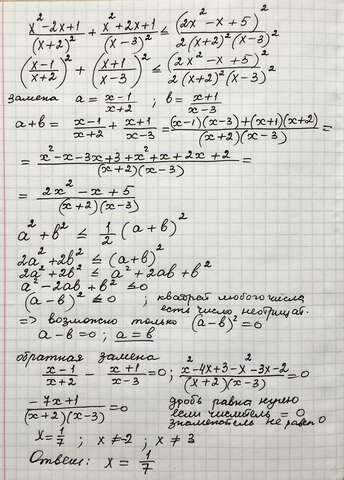 (x²-2x+1)/(x+2)² + (x²+2x+1)/(x-3)² ≤ (2x²-x+5)²/(2(x+2)²(x-3)²)
((x-1)/(x+2))² + ((x+1)/(x-3))² ≤ (2x²-x+5)²/(2(x+2)²(x-3)²)
замена a = (x-1)/(x+2) ; в = (x+1)/(x-3)
a+в = (x-1)/(x+2) + (x+1)/(x-3) = ((x-1)(x-3)+(x+1)(x+2))/((x+2)(x-3)) =
= (x²-x-3x+3+x²+x+2x+2)/((x+2)(x-3)) =
= (2x²-x+5)/((x+2)(x-3))
a²+в² ≤ 1/2 (a+в)²
2a²+2в² ≤ (a+в)²
2a²+2в² ≤ a²+2aв+в²
a²-2aв+в² ≤0
(a-в)² ≤0 ; квадрат любого числа
есть число неотрицат.
=> возможно только (a-в)²=0
a-в=0 ; a=в
обратная замена
(x-1)/(x+2) - (x+1)/(x-3) =0 ; (x²-4x+3-x²-3x-2)/((x+2)(x-3)) =0
(-7x+1)/((x+2)(x-3)) =0 дробь равна нулю
если числитель = 0
знаменатель не равен 0
x=1/7 ; x≠-2 ; x≠3
Ответ: x = 1/7